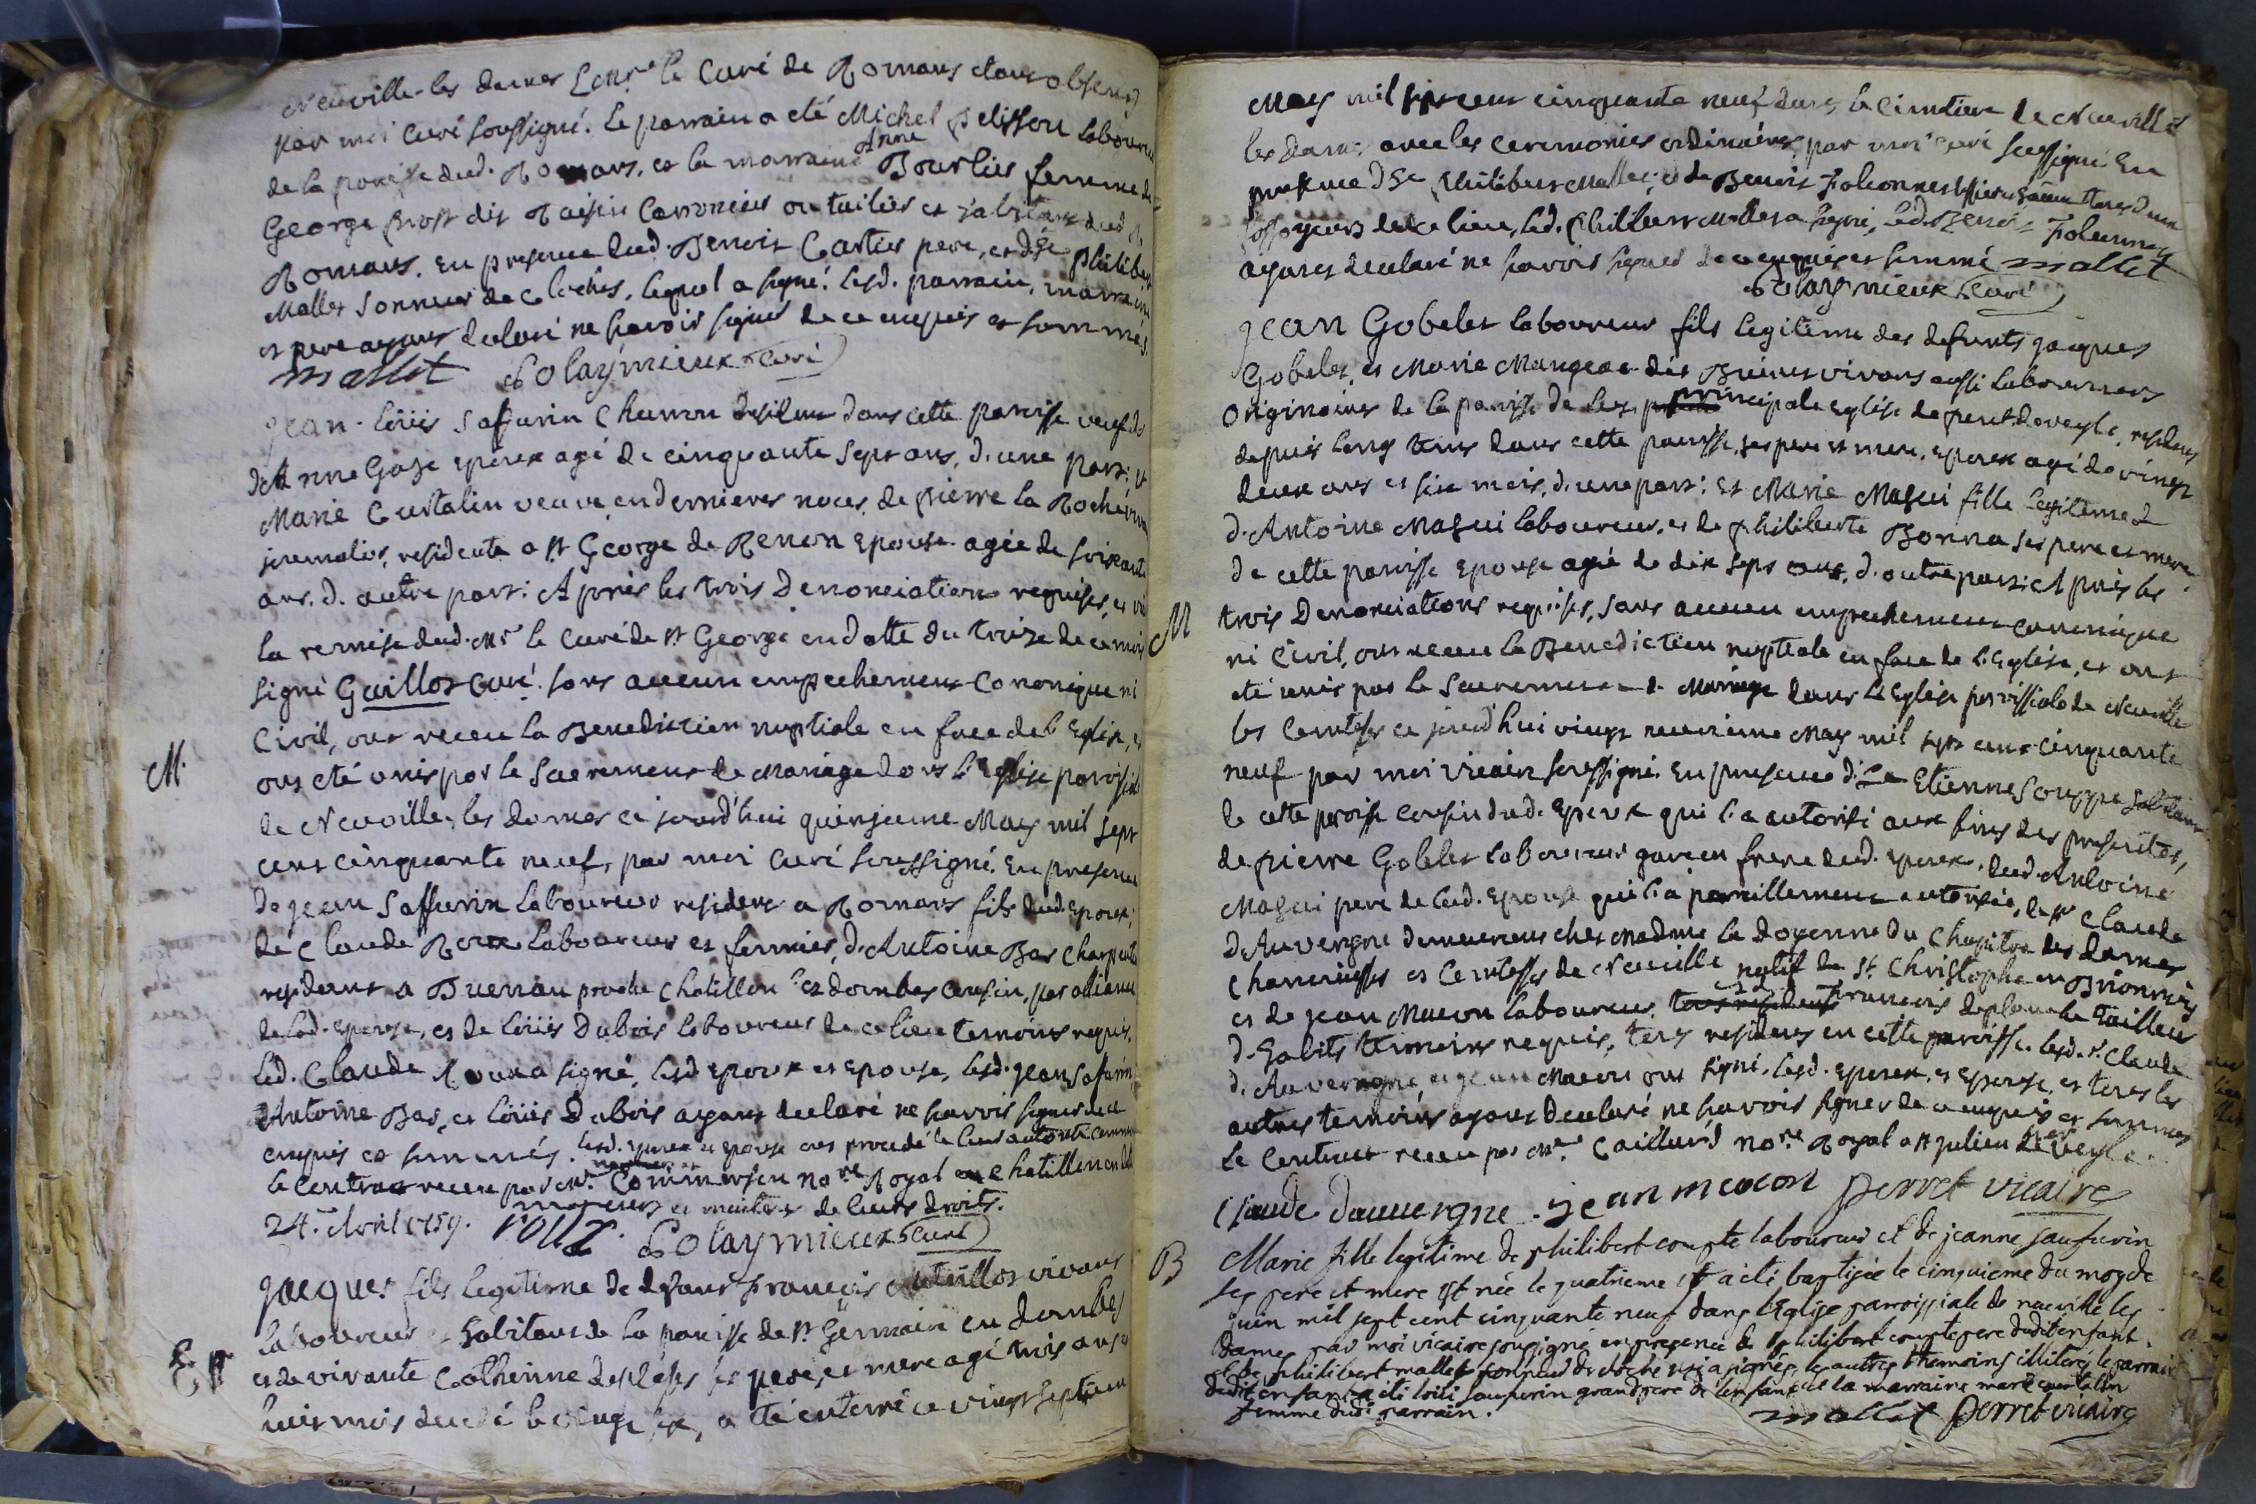 Neuville-les dames le Mr. le Curé de Romans étant absent
par moi Curé soussigné. Le parrain a eté Michel Pelisson laboureur
de la paroisse dud. Romans, et la marraine Anne Bourlier femme de
George Prost dit Raisin Carronier ou tuilier et habitant dud.
Romans. En presence dud. Benoit Cartier pere, et de Sr. Philibert
Mallet Sonneur de cloches, lequel a signé. Lesd. parrain, marraine
et pere ayant declaré ne scavoir signer de ce enquis et sommés.
mallet Polaymieux Curé
Jean-Loüis Saffurin Charron residant dans cette paroisse veuf de
d'Anne Goze epoux agé de cinquante sept ans, d'une part; et
Marie Curtalin veuve en dernieres noces de pierre la Roche vivant
journalier, residente a St. George de Renon Epouse agée de soixante
ans, d'autre part: Après les trois Denonciations requises, et vû
la remise dud. Mr. le Curé de St. George en datte du treize de ce mois
signé Guillot Curé. sans aucun empechement Canonique ni
Civil, ont receu la Benediction nuptiale en face de l'Eglise, et
M. ont eté unis par le Sacrement de Mariage dans l'Eglise paroissiale
de Neuville, les dames ce jourd'hui quinzieme May mil sept
cent cinquante neuf, par moi Curé soussigné. En presence
de Jean Saffurin laboureur residant a Romans fils dud. Epoux;
de Claude Roux laboureur et fermier, d'Antoine Bas charpentier
residant a Buenan proche Chatillon les dombes cousin, par alliance
de lad. Epouse, et de Loüis Dubois laboureur de ce lieu temoins requis.
Led. Claude Roux a signé, lesd epoux et epouse, lesd. Jean Safurin
Antoine Bas, et Loüis Dubois ayant declaré ne scavoir signer de ce
enquis et sommés. Lesd. epoux et epouse ont procedé de leur autorité comme
le Contract receu par Mr. Commerson Nore. Royal a Chatillon en dombes
majeurs et maitres de leurs droits.
24e. Avril 1759. roux. Polaymieux Curé
Jacques fils legitime de defunt François vivant
laboureur et habitant de la paroisse de St. Germain en dombes
Et et de vivante Catherine ses pere, et mere agé trois ans et
huit mois decedé le vingt six, a eté enterré ce vingt septieme
May mil sept cent cinquante neuf dans le cimetiere de Neuville
les dames avec les ceremonies ordinaires, par moi Curé soussigné En
presence de Sr. Philibert Mallet, et de Benoit
fossoyeurs de ce lieu, led. Philibert Mallet a signé, led. Benoit
ayant declaré ne scavoir signer de ce enquis et sommé mallet
Polaymieux Curé
Jean Gobelet laboureur fils legitime des defunts Jacques
Gobelet, et Marie Mangeat dit vivans aussi laboureurs
Originaires de la paroisse de principale Eglise de pont-de-veyle, residant
depuis long tems dans cette paroisse, ses pere et mere, epoux agé de vingt
deux ans et six mois, d'une part: et Marie Magui fille legitime
d'Antoine Magui laboureur, et de philiberte Bonna ses pere et mere
de cette paroisse Epouse agée de dix sept ans, d'autre part: Après les
M trois Denonciations requises, sans aucun empechement canonique
ni Civil, ont receu la Benediction nuptiale en face de l'Eglise, et ont
eté unis par le Sacrement de Mariage dans l'Eglise paroissiale de Neuville
les Comtesses ce jourd'hui vingt neuvieme May mil sept cent cinquante
neuf par moi vicaire soussigné. En presence de Sr. Etienne Souppe habitant
de cette paroisse cousin dud. Epoux qui l'a autorisé aux fins des presentes,
de pierre Gobelet laboureur garcon frere dud. epoux, dud. Antoine
Magui pere de lad. Epouse qui l'a pareillement autorisée, de Sr. Claude
D'Auvergne demeurant chez Madame la Doyenne du Chapitre des Dames
Chanoinesses et Comtesses de Neuville natif de St. Christophe en Brionnois
et de Jean Macon laboureur, François Deplanche Tailleur
d'habits temoins requis, tous residens en cette paroisse. Lesd. Sr. Claude
d'Auvergne, et Jean Macon ont signé, lesd. epoux, et epouse, et tous les
autres temoins ayant declaré ne scavoir signer de ce enquis et sommés
Le Contract receu par Mre. Caillard Nore. Royal a St. Julien sur veyle.
Claude dauuergne. jean macon perret vicaire
B Marie fille legitime de philibert comte laboureur et de jeanne saufurin
ses pere et mere est née le quatrieme et a eté baptisée le cinquieme du moy de
juin mil sept cent cinquante neuf dans l'Eglise paroissiale de neuville les
Dames par moi vicaire soussigné en presence de philibert comte pere dudit enfant
et de philibert mallet sonneur de cloche qui a signé, les autres themoins illiterés le parrain
dudit enfant a eté loüi saufurin grand pere de l'enfant et la marraine marie curtalin
femme dudit parrain.
mallet perret vicaire